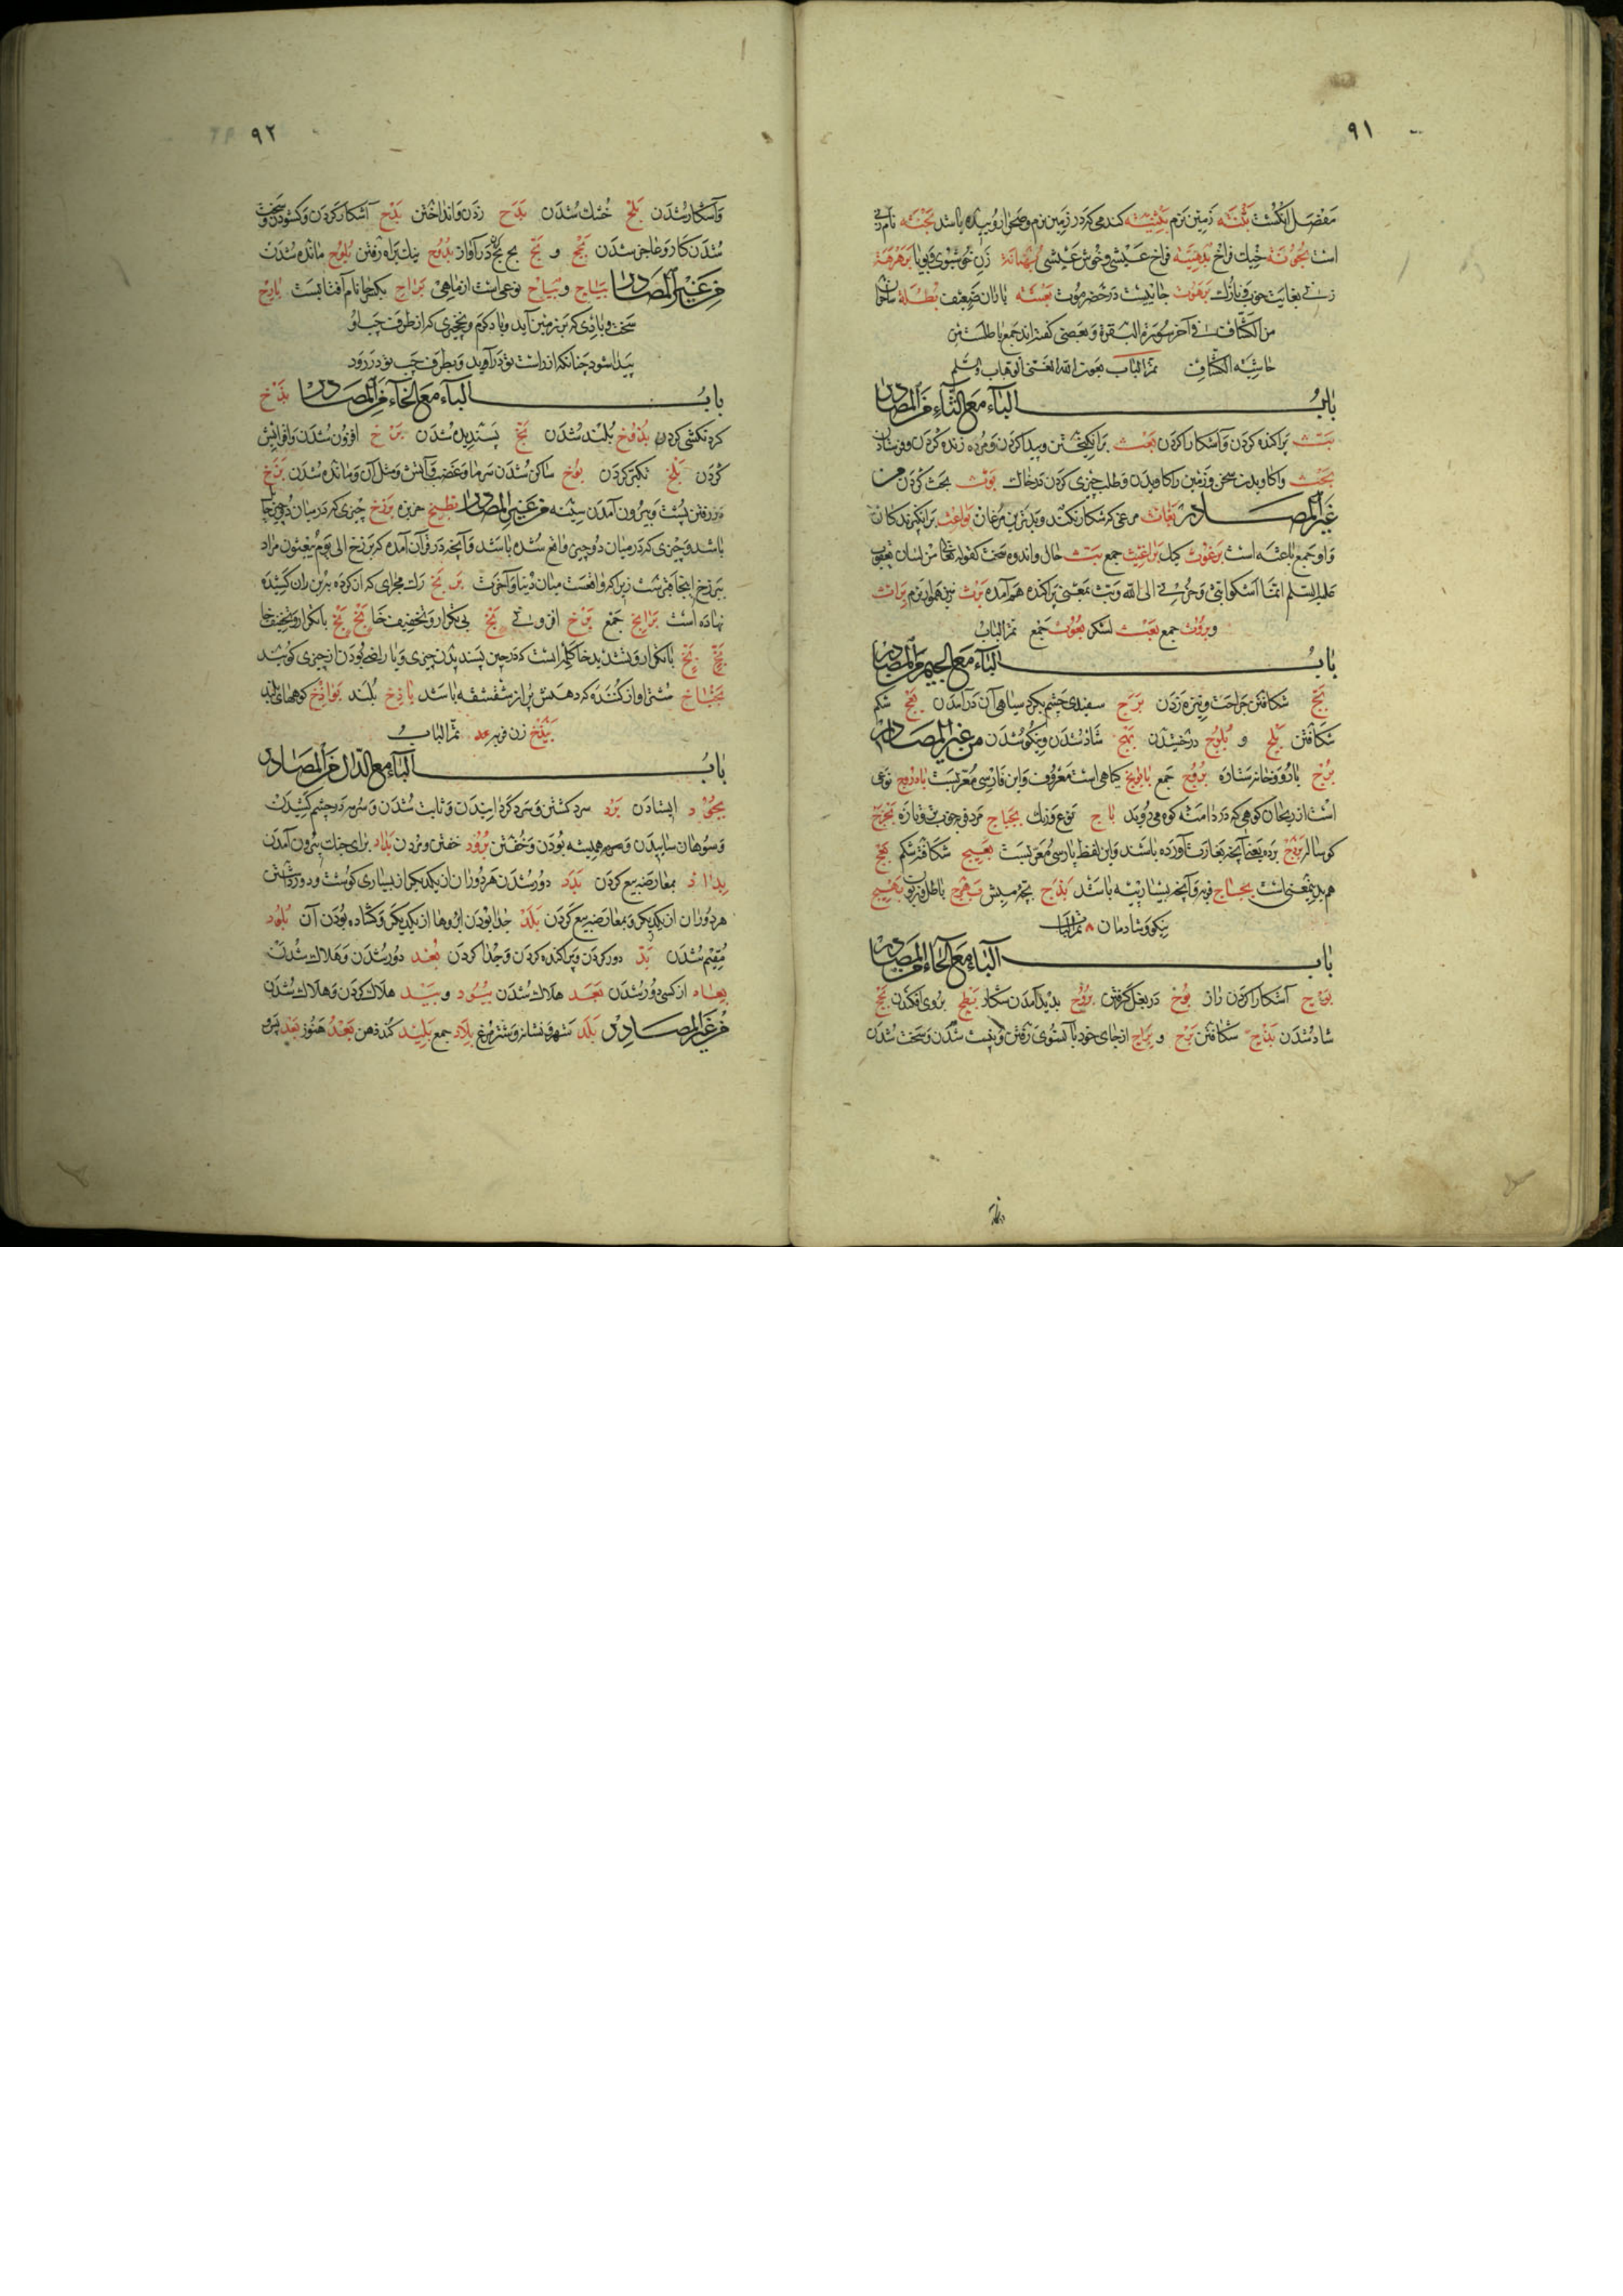 ۹۱
مفصل انگشت بثنه زمین نرم بثینه کند می که در زمین نرم و صحرا روییده باشد بجنه نام
است بجونة خیك فراخ بلهنیة فراخ عیشی و خوش عیشی بهنانة زن خوشبوی و بویا برهرهة
زنی بغایت خوب و نازك برهوت جاییست در حضرموت بغشه باران ضعیف بطلة ساحران
من الکشاف فی آخر سورة البقرة و بعضی گفته اند جمع باطلست من
حاشیه الکشاف تمّ الباب بعون الله الغنی الوهاب
باب الباء مع الثاء من المصادر
بث پراکنده کردن و آشکارا کردن بعث برانگیختن و پیدا کردن و مرده زنده کردن و فرستادن
بحث واکاویدن سخن و زمین را کاویدن و طلب چیزی کردن در خاك بوث بحث کردن من
غیر المصادر بغاث مرغی که شکار نکند و بدترین مرغان بواعث برانگیزندگان
و او جمع باعثه است برغوث کیك براغیث جمع بث حال و اندوه سخت کقوله تعالی من لسان یعقوب
علیه السلم انما اشکوا بثی و حزنی الی الله و بث بمعنی پراکنده هم آمده برث زمین هموار نرم براث
و بروث جمع بعث لشکر بعوث جمع تمّ الباب
باب الباء مع الجیم من المصادر
بج شکافتن جراحت و نیزه زدن برج سفیدی چشم بگرد سیاهی آن در آمدن بعج شکم
شکافتن بلج و بلوج درخشیدن بهج شاد شدن و نیکو شدن من غیر المصادر
برج بارو و خانه ستاره بروج جمع بابونج گیاهی است معروف و این فارسی معربست بادروج نوعی
است از ریحان کوهی که در دامنه کوه می روید باج نوع و رنك بجباج مرد فربه
گوساله بردج برده یعنی آنچه بغارت آورده باشند و این لفظ پارسی معربست بعیج شکافته شکم بعج
هم بدین معنی است بجباج فربه و آنچه بسیار پیه باشد بذج بچه میش بهرج باطل و زبون بهیج
نیکو و شادمان تمّ الباب
باب الباء مع الحاء من المصادر
بواح آشکارا کردن راز بوح در بغل گرفتن بروح پدید آمدن شکار بطح بروی افکندن بجح
شاد شدن بذح شکافتن برح و براح از جای خود یا از سوی رفتن و نیست شدن و سخت شدن
۹۲
و آشکار شدن بلح خشك شدن بدح زدن و انداختن بدح آشکار کردن و گشودن و سخت
شدن کار و عاجز شدن بحح و بح بح بح در آواز بدوح نیك براه رفتن بلوح مانده شدن
من غیر المصادر بیاح و بیاح نوعی است از ماهی براح بکسر حا نام آفتابست بارح
سخت بادی که بر زمین آید و باد گرم و نخجیری که از طرف چپ او
پیدا شود چنانکه از راست تو در آید و بطرف چپ تو در رود
باب الباء مع الخاء من المصادر بذخ
گردنکشی کردن بذوخ بلند شدن بخ پسندیده شدن برخ افزون شدن و افزایش
کردن بلخ تکبر کردن بوخ ساکن شدن سرما و غضب و آتش و مثل آن و مانده شدن بزخ
فرو رفتن پشت و بیرون آمدن سینه من غیر المصادر بطیخ خربزه برزخ چیزی که در میان دو چیز
باشد و چیزی که در میان دو چیز واقع شده باشد و آنچه در قرآن آمده که برزخ الی یوم یبعثون مراد
ببرزخ اینجا قبرست زیرا که واقعست میان دنیا و آخرت بربخ رك مجرای که از گرده بر ران کشیده
نهاده است برابخ جمع برخ افزونی بخ بی تکرار و تخفیف خا بخ بخ با تکرار و تخفیف خا
بخ بخ با تکرار و تشدید خا کلمه ایست که در حین پسندیدن چیزی و یا راضی بودن از چیزی گویند
بخباخ شتر آواز کننده که دهنش پر از شقشقه باشد باذخ بلند بواذخ کوههای بلند
بیذخ زن فربه تمّ الباب
باب الباء مع الدال من المصادر
بجود ایستادن برد سرد گشتن و سرد گردانیدن و ثابت شدن و سرمه در چشم کشیدن
و سوهان ساییدن و همیشه بودن و خفتن برود خفتن و مردن بداد برای جنك بیرون آمدن
بداد بمعارضه بیع کردن بدد دور شدن هر دو ران از یکدیگر از بسیاری گوشت و دور داشتن
هر دو ران از یکدیگر و بمعارضه بیع کردن بلد جدا بودن ابروها از یکدیگر و گشاده بودن آن بلود
مقیم شدن بد دور کردن و پراکنده کردن و جدا کردن بعد دور شدن و هلاك شدن
بعاد از کسی دور شدن بعد هلاك شدن بیود و بید هلاك کردن و هلاك شدن
من غیر المصادر بلد شهر و نشانه و شترمرغ بلاد جمع بلید کند ذهن بعد هنوز بعد پس